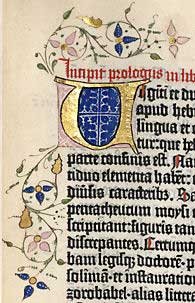 Incipit prologus in lib
Uigiti et du
apud hebr
lingua et
tur: que heb
parte confinis est. Na
duo elementa habēt: e
diūsis caracterib⁹.
pentatheucum moysi
scriptitant: figuris tan
discrepantes. Certum
bam legisq; doctorē p
solimā et instauratiōn
zorobabel alias litter